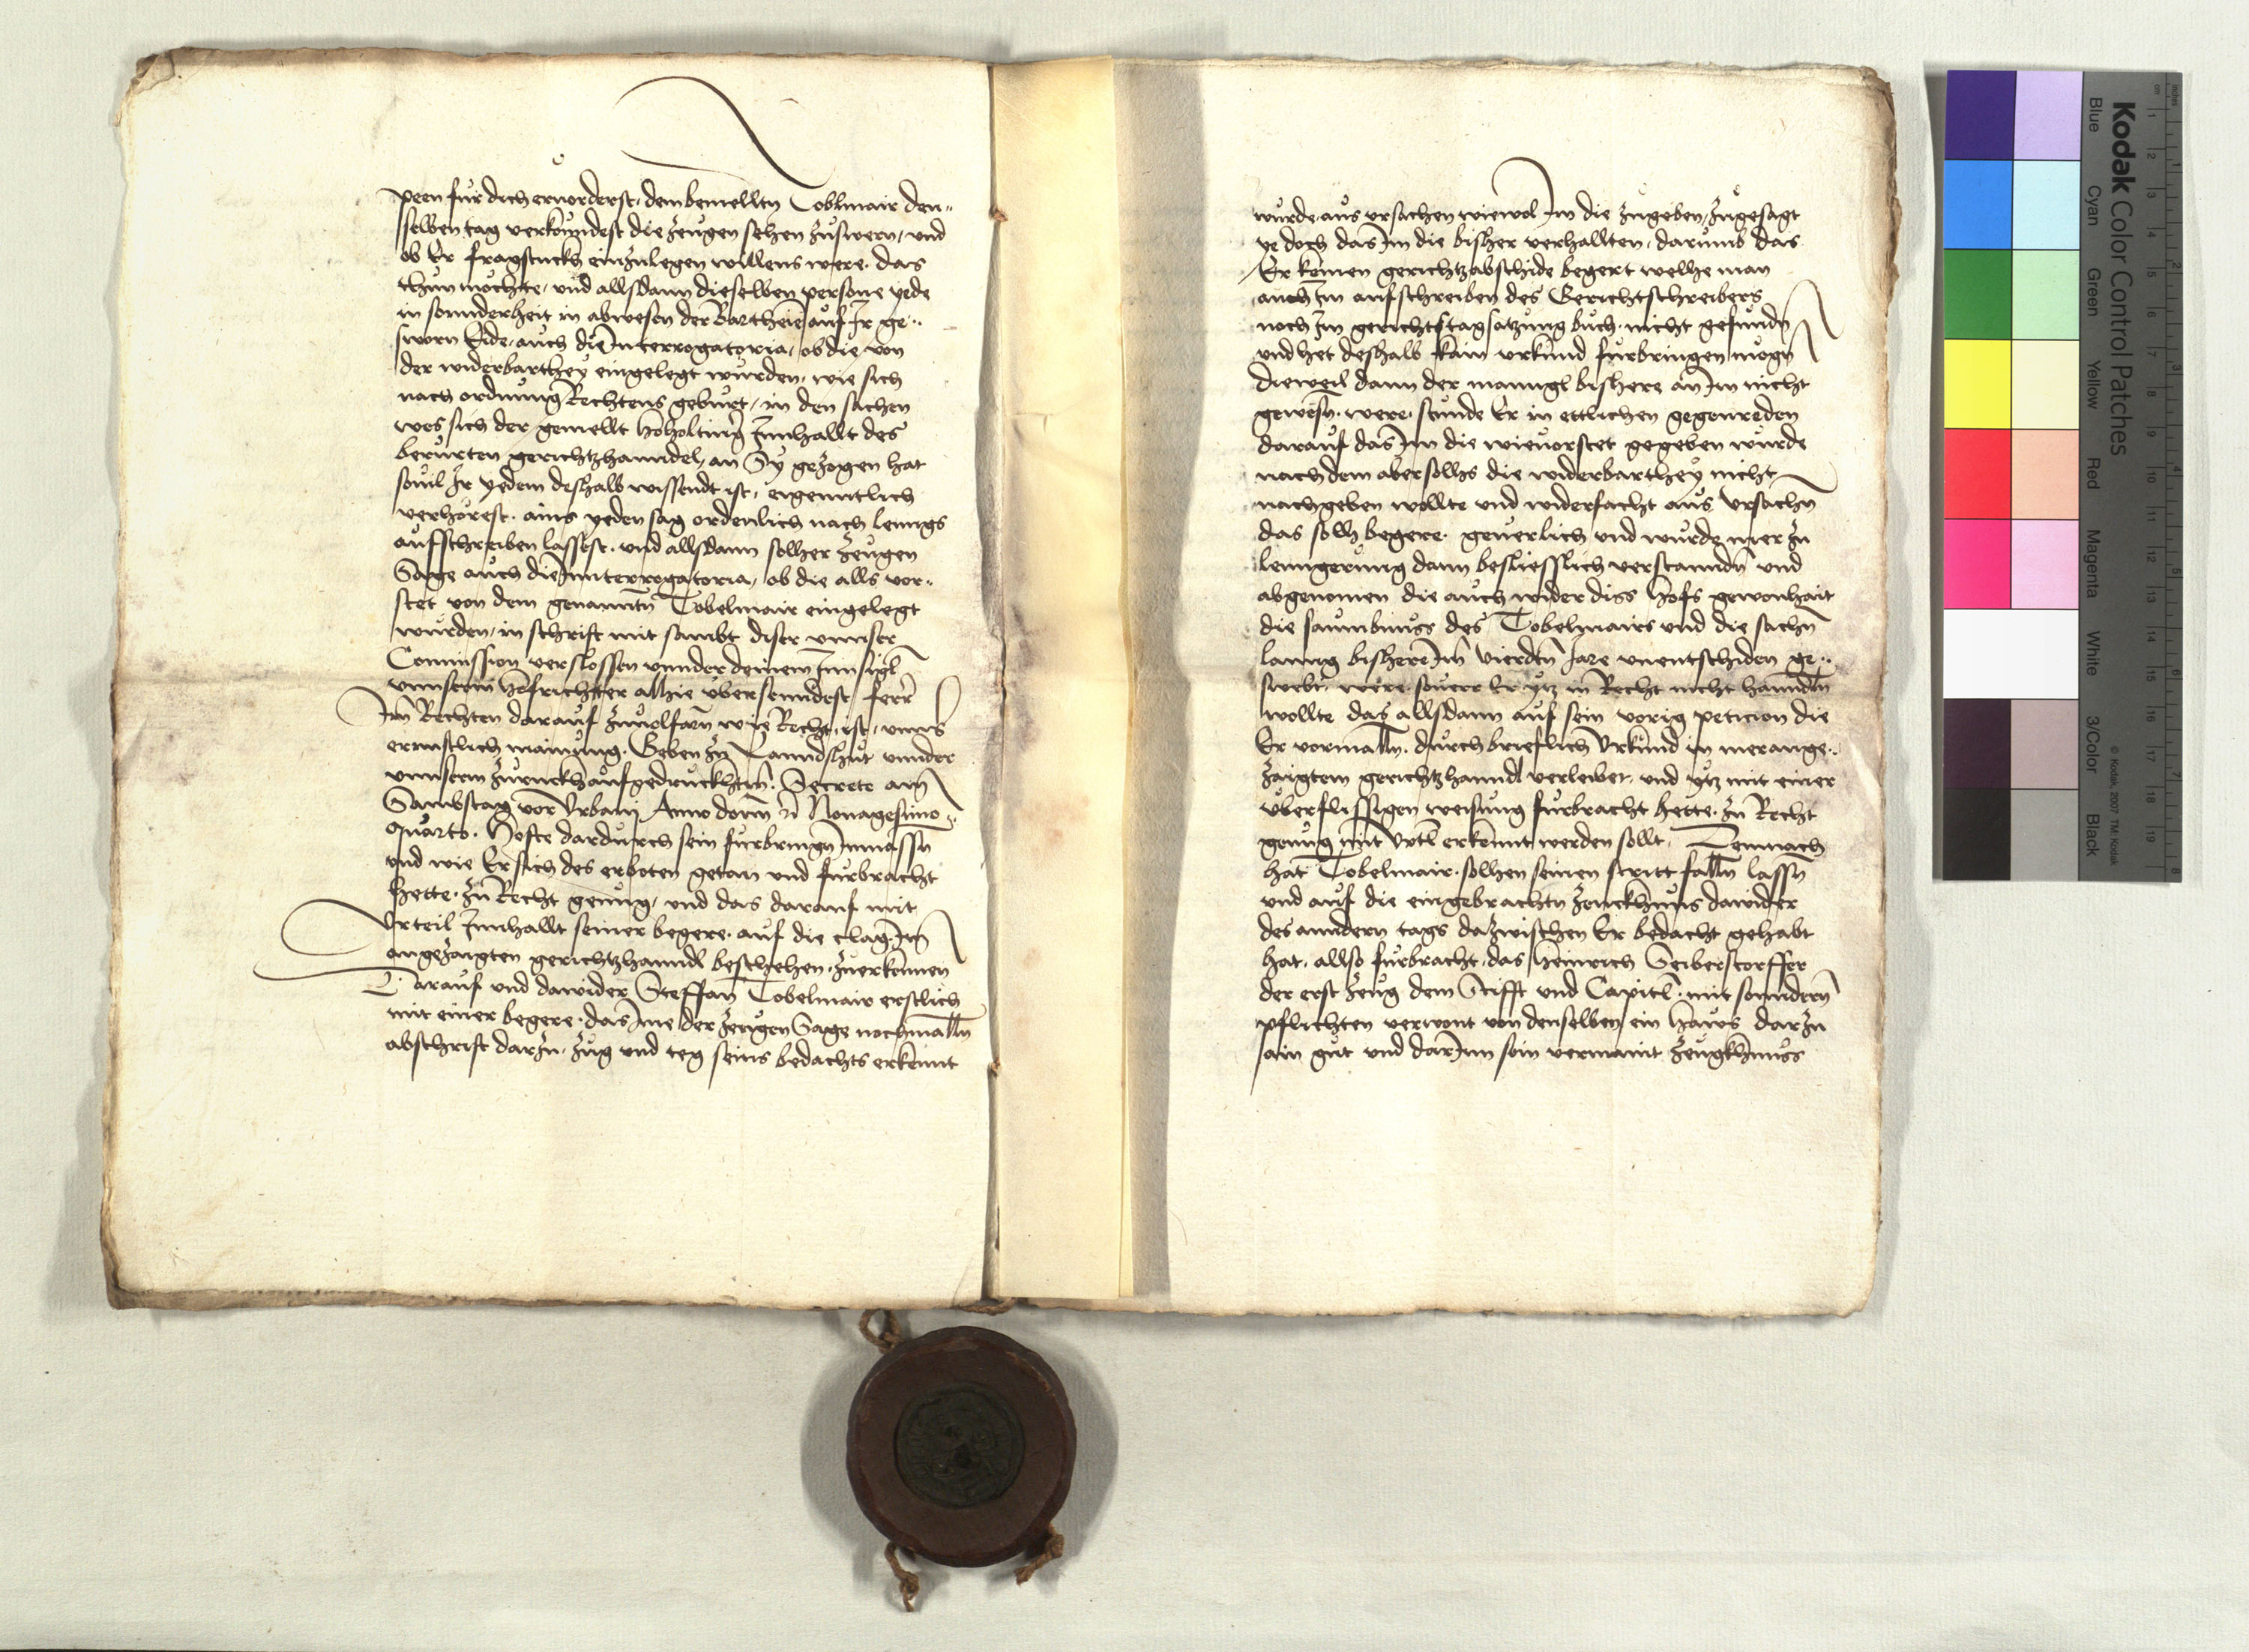 peen für dich ervorderst, dem bemellten Toblmair den..
selben tag verkoundest die zeugen sehen zuswern, und
ob Er fragstuckh einzulegen willens were. das
thun mochte, und allsdann dieselben persone yede
in sonnderheit in abwesen der Bartheie auf Ir ge..
sworn Eide, auch die Interrogatoria, ob die von
der widerbarthey eingelegt wurden, wie sich
nach ordnung Rechtens geburt, in den sachen
wes sich der gemellt Hoholtinng Innhallt des
berurten gerichtzhanndel, an Sy gezogen hat
souil Ir yedem deshalb wissendt ist, eigenntlich
verhörest. ains yeden sag ordenlich nach lenngs
aufschreiben lassest. und allsdann solher zeugen
Sage auch die Innterrogatoria, ob die alls vor..
stet von dem genanntn Tobelmair eingelegt
wurden, in schrift mit sambt diser unnser
Comission verslossen unnder deinem Innsigl
unnserm Hofrichter alhie übersenndest ferr
Im Rechten darauf zuuolfarn wie Recht ist, unns
ernnstlich mainung. Geben zu Lanndshut unnder
unnserm zuruckh aufgedruckhtm Secrete am
Sambstag vor Urbani Anno domi &c Nonagesimo..
Quarto. Hofte dardurch sein furbringn Inmassn
und wie Er sich des erboten getan und furbracht
hette. zu Recht genug, und das darauf mit
Urteil Innhallt seiner begere. auf die clag Im
angezaigten gerichtzhanndl beschehen, zuerkennen
Darauf und dawider Steffan Tobelmair erstlich
mit einer begere. das Ime der zeugen Sage nochmalln
abschrift darzu, zug und teg seins bedachts erkennt
wurde, aus ursachen wiewol Im die zugeben, zugesagt
ye doch das Im die bisher verhallten, darumb das
Er keinen gerichtzabschide begert welhe man
auch Im aufschreiben des Gerichtschreibers
noch Im gerichtstagsatzung buch. nicht gefundn
und het deshalb kain urkund furbringen mogn
dieweil dann der manngl bishere an Im nicht
gewesn. were. stunde Er in ettlichen gegenreden
darauf das Im die wieuorstet gegeben wurde
nachdem aber sollhs die widerbarthey nicht
nachgeben wollte und widerfacht aus Ursachn
das sollh begere. geuerlich und wurde mer zu
lenngerung dann besliesslich verstanndn und
abgenomen die auch wider diss Hofs gewonhait
die saumbnuss des Tobelmairs und die sachn
lanng bishere Im Vierdtn Jare unentschiden ge..
swebt. were. souerr Er ytz in Recht nicht hanndln
wollte das allsdann auf sein vorig peticion die
Er vormalln. durch brieflich Urkund in mer ange..
zaigtem gerichtzhanndl verleibet, und ytz mit einer
überflissigen weisung furbracht hette. zu Recht
genug mit Urtl erkennt werden sollt, Demnach
hat Tobelmair. solhen seinen stritt falln lassn
und auf die eingebrachtn zeuckhnus dawider
des anndern tags dazwischen Er bedacht gehabt
hat. allso furbracht, das Heinrich Seiberstorffer
der erst zeug dem Stifft und Capitl. mit sonndern
pflichten verwont von denselben ein Haws darzu
ain gut und darInn sein vermaint zeugkhnuss
Kodak Color Control Patches
Blue
Cyan
Green
Yellow
Red
Magenta
White
3/Color
Black
© Kodak, 2007 TM: Kodak